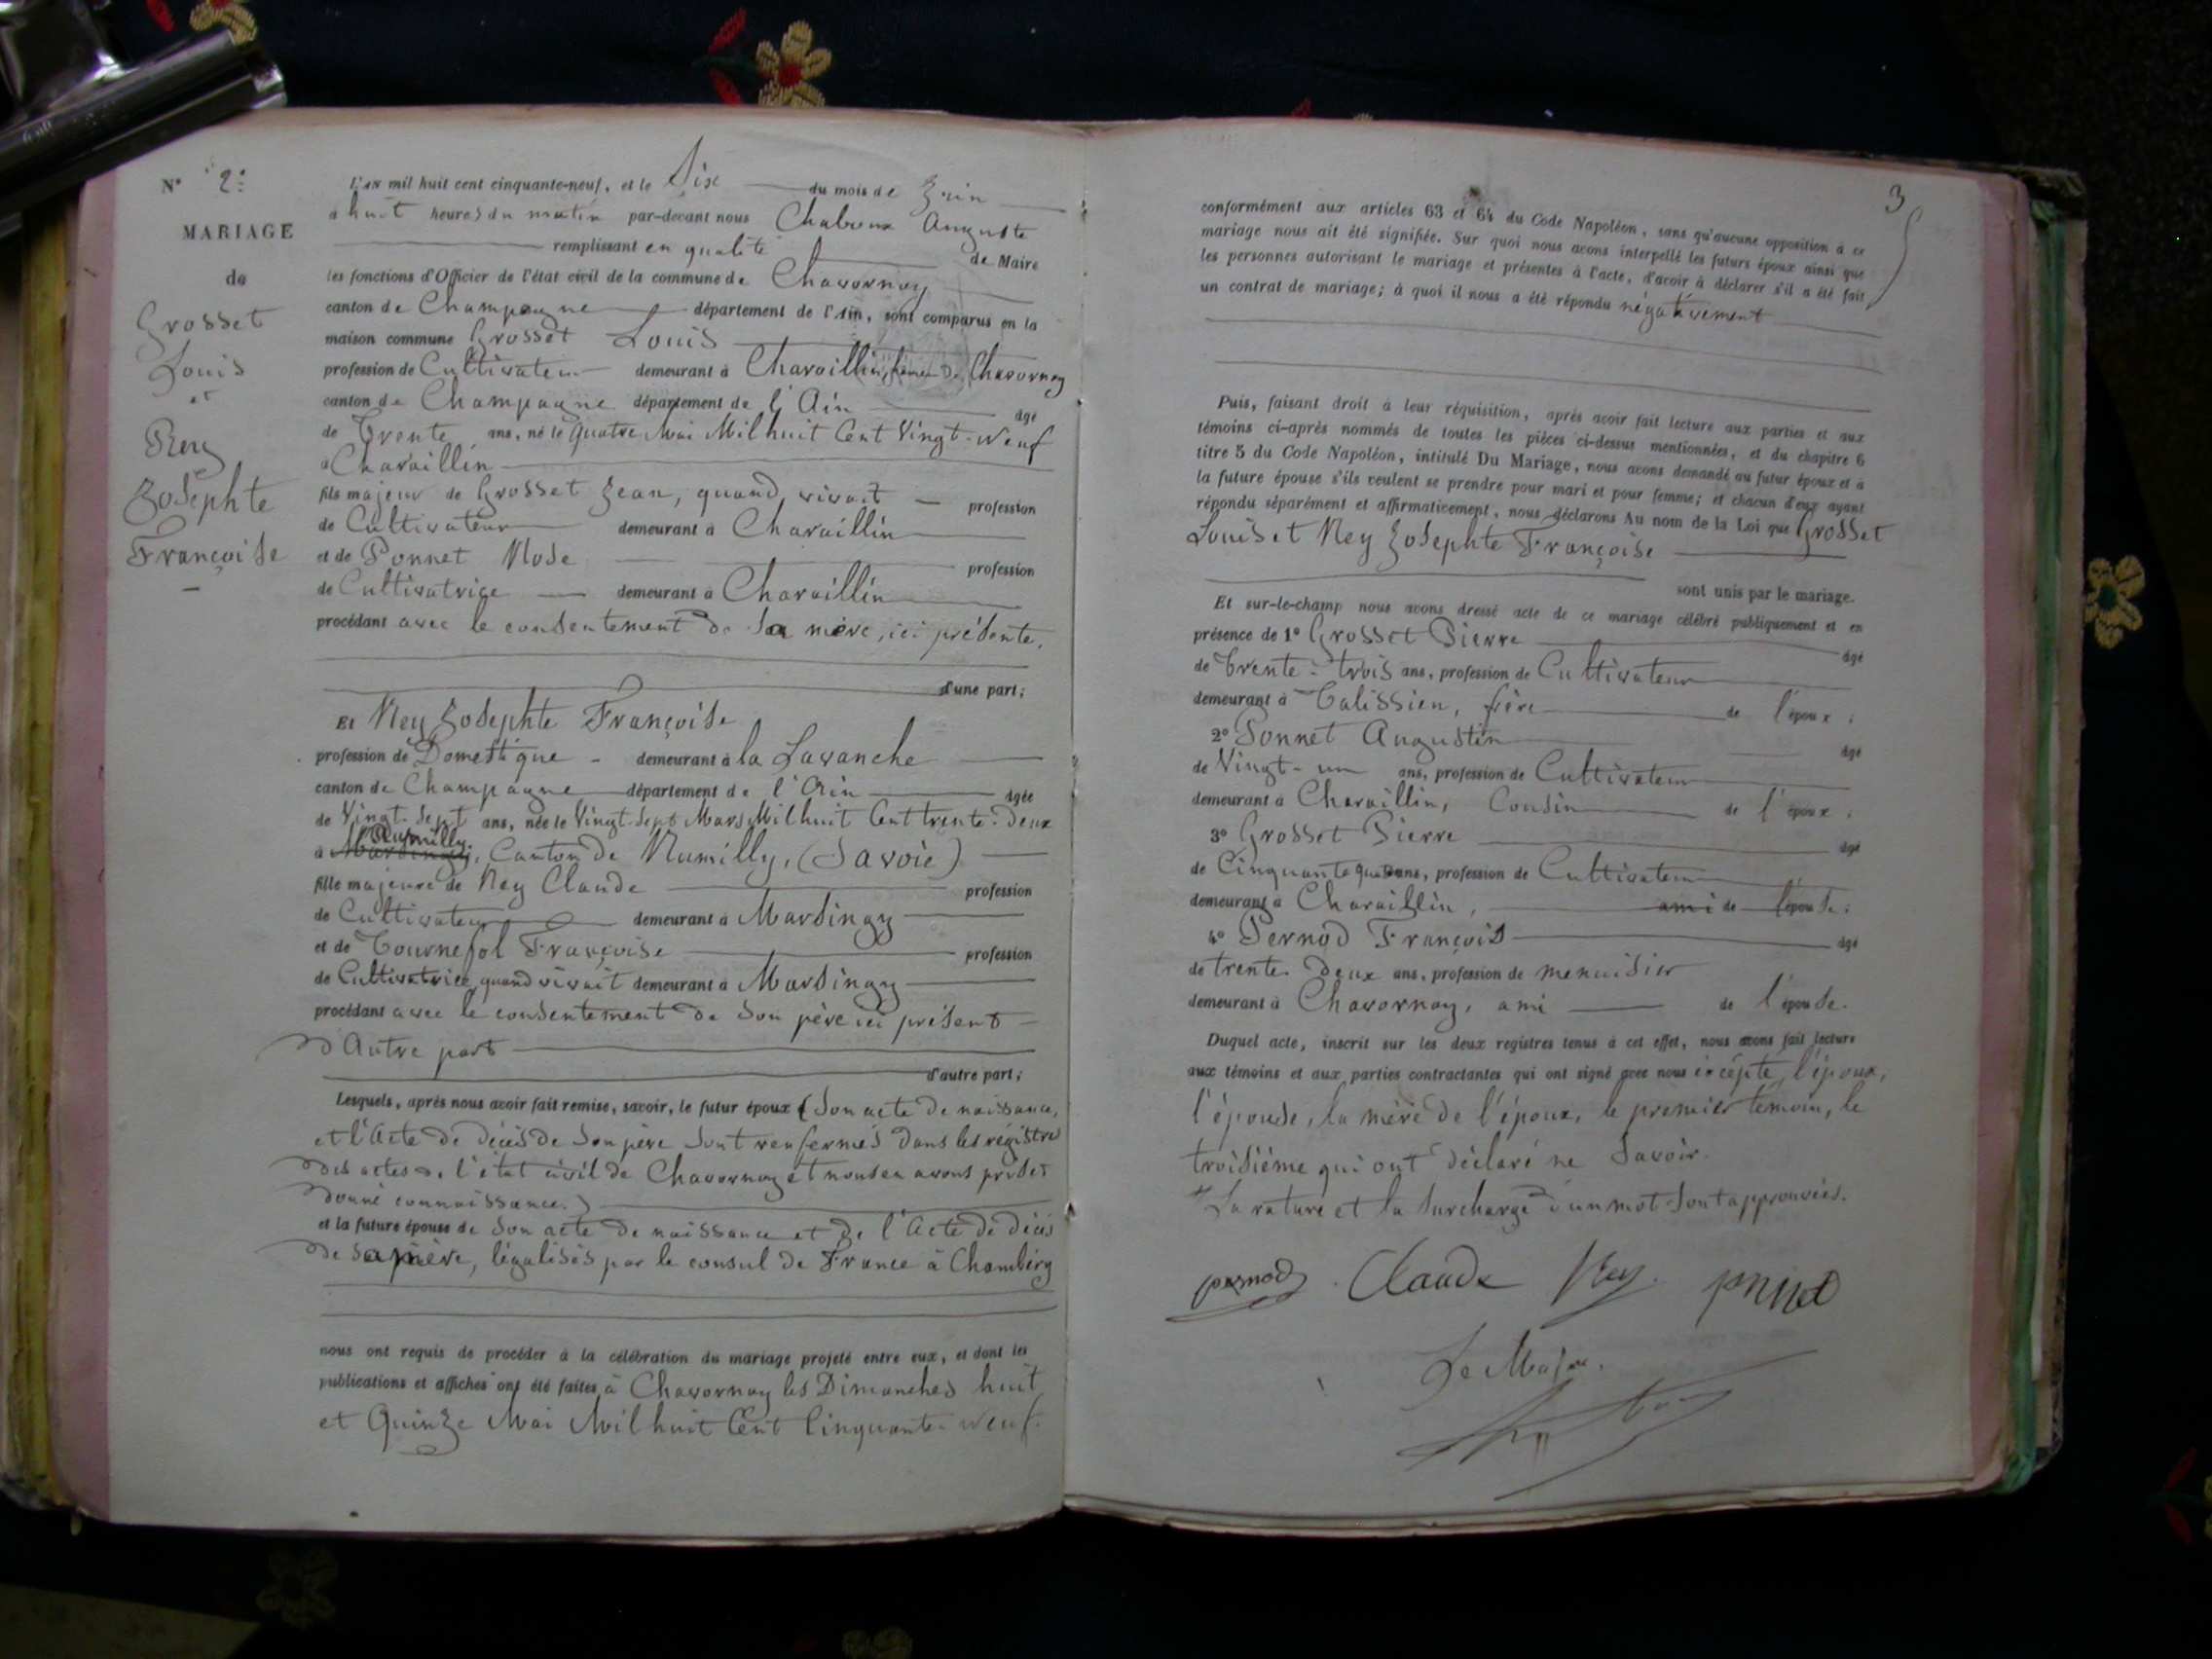 N° 2.
MARIAGE
de
Grosset
Louis
et
Rey
Josephte
Françoise
L'an mil huit cent cinquante-neuf, et le Six du mois de Juin
à huit heures du matin par-devant nous Chaboux Auguste
remplissant en qualité de Maire
les fonctions d'Officier de l'état civil de la commune de Chavornay
canton de Champagne département de l'Ain, sont comparus en la
maison commune Grosset Louis
profession de Cultivateur demeurant à Charaillin, de Chavornay
canton de Champagne département de l'Ain âgé
de Trente ans, né le Quatre Mai Mil huit Cent Vingt-Neuf
à Charaillin
fils majeur de Grosset Jean, quand vivait profession
de Cultivateur demeurant à Charaillin
et de Ponnet Rose profession
de Cultivatrice demeurant à Charaillin
procédant avec le consentement de Sa mère, ici présente,
d'une part;
Et Rey Josephte Françoise
profession de Domestique demeurant à la Lavanche
canton de Champagne département de l'Ain âgée
de Vingt-Sept ans, née le Vingt-Sept Mars Mil huit Cent trente-deux
à Rumilly, Canton de Rumilly, (Savoie)
fille majeure de Rey Claude profession
de Cultivateur demeurant à Marsingy
et de Tournefol Françoise profession
de Cultivatrice quand vivait demeurant à Marsingy
procédant avec le consentement de Son père ici présent
d'Autre part
d'autre part;
Lesquels, après nous avoir fait remise, savoir, le futur époux (Son acte de naissance,
et l'Acte de décès de Son père Sont renfermés dans les régistres
des actes de l'état civil de Chavornay et nous en avons
donné connaissance.)
et la future épouse de Son acte de naissance et de l'Acte de décès
de Sa mère, légalisés par le consul de France à Chambéry
nous ont requis de procéder à la célébration du mariage projeté entre eux, et dont les
publications et affiches ont été faites à Chavornay les Dimanches huit
et Quinze Mai Mil huit Cent Cinquante-Neuf.
3
conformément aux articles 63 et 64 du Code Napoléon, sans qu'aucune opposition à ce
mariage nous ait été signifiée. Sur quoi nous avons interpellé les futurs époux ainsi que
les personnes autorisant le mariage et présentes à l'acte, d'avoir à déclarer s'il a été fait
un contrat de mariage; à quoi il nous a été répondu négativement
Puis, faisant droit à leur réquisition, après avoir fait lecture aux parties et aux
témoins ci-après nommés de toutes les pièces ci-dessus mentionnées, et du chapitre 6
titre 5 du Code Napoléon, intitulé Du Mariage, nous avons demandé au futur époux et à
la future épouse s'ils veulent se prendre pour mari et pour femme; et chacun d'eux ayant
répondu séparément et affirmativement, nous déclarons Au nom de la Loi que Grosset
Louis et Rey Josephte Françoise
sont unis par le mariage.
Et sur-le-champ nous avons dressé acte de ce mariage célébré publiquement et en
présence de 1° Grosset Pierre âgé
de Trente-trois ans, profession de Cultivateur
demeurant à Talissieu, frère de l'époux;
2° Ponnet Augustin âgé
de Vingt-un ans, profession de Cultivateur
demeurant à Charaillin, Cousin de l'époux;
3° Grosset Pierre âgé
de Cinquante quatre ans, profession de Cultivateur
demeurant à Charaillin, ami de l'épouse;
4° Pernod François âgé
de trente-deux ans, profession de menuisier
demeurant à Chavornay, ami de l'épouse.
Duquel acte, inscrit sur les deux registres tenus à cet effet, nous avons fait lecture
aux témoins et aux parties contractantes qui ont signé avec nous excépté, l'époux,
l'épouse, la mère de l'époux, le premier témoin, le
troisième qui ont déclaré ne Savoir.
La rature et la Surcharge d'un mot Sont approuvées.
pernod Claude Rey ponnet
Le Maire.